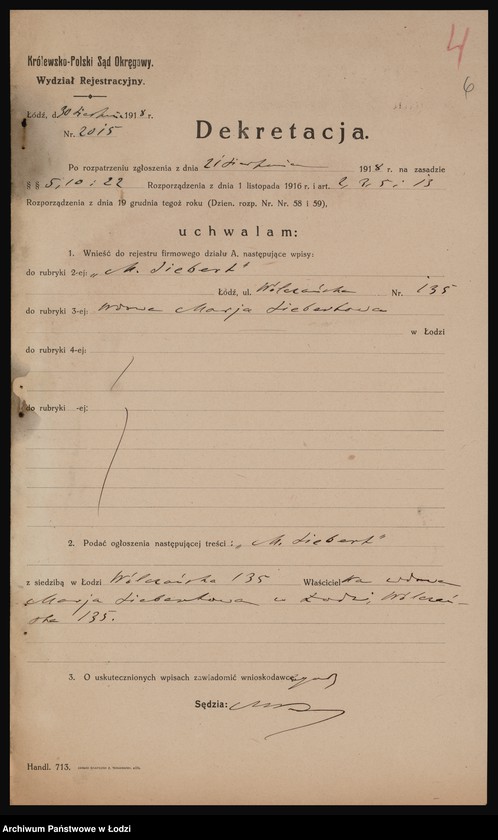 4
6
Królewsko-Polski Sąd Okręgowy.
Wydział Rejestracyjny.
Łódź, d. 30 sierpnia 1918 r.
Nr. 2015
Dekretacja.
Po rozpatrzeniu zgłoszenia z dnia 21 sierpnia 1918 r. na zasadzie
§ § 5, 10 i 22 Rozporządzenia z dnia 1 listopada 1916 r. i art. 2, 3, 5 i 13
Rozporządzenia z dnia 19 grudnia tegoż roku (Dzien. rozp. Nr. Nr. 58 i 59),
uchwalam:
1. Wnieść do rejestru firmowego działu A, następujące wpisy:
do rubryki 2-ej: „M. Siebert"
Łódź, ul. Wólczańska Nr. 135
do rubryki 3-ej: wdowa Marja Siebertowa
w Łodzi
do rubryki 4-ej:
do rubryki -ej:
2. Podać ogłoszenia następującej treści: „M. Siebert"
z siedzibą w Łodzi Wólczańska 135 Właścicielka wdowa
Marja Siebertowa w Łodzi, Wólczań-
ska 135.
3. O uskutecznionych wpisach zawiadomić wnioskodawcę
Sędzia:
Handl. 713.
Archiwum Państwowe w Łodzi